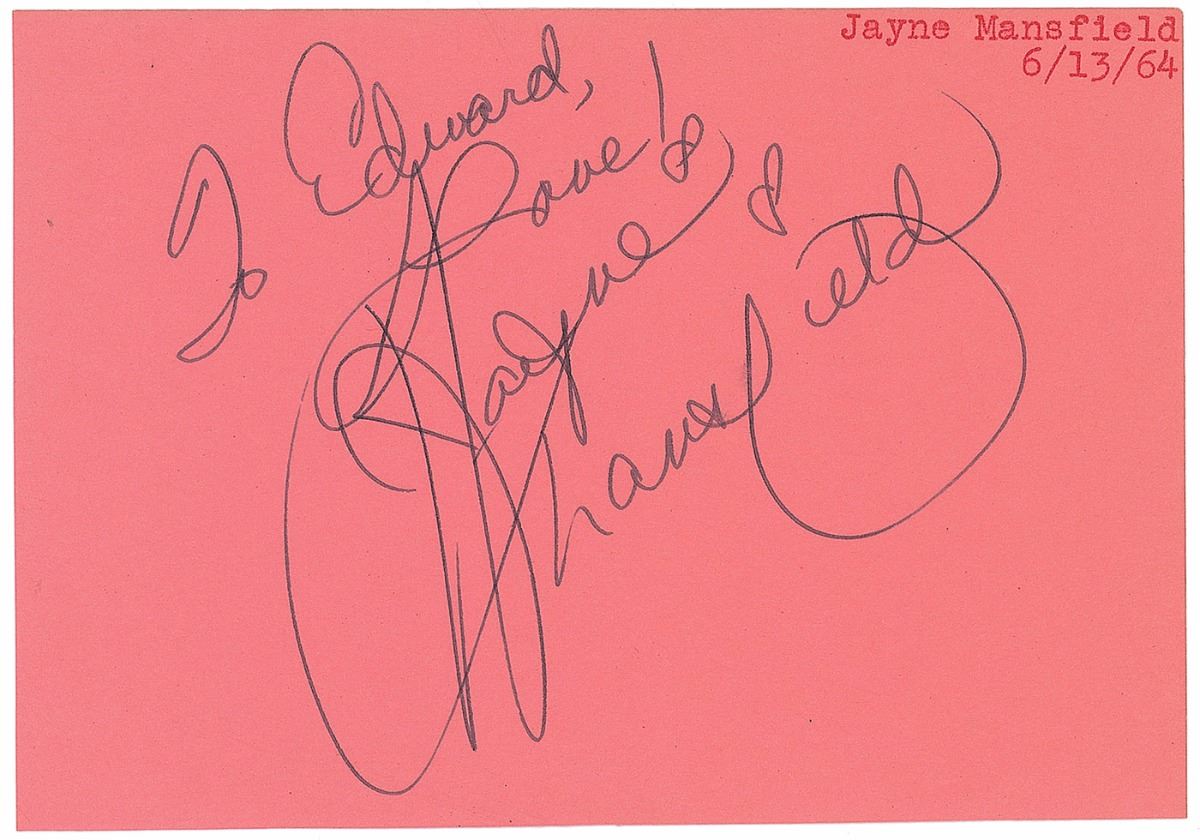 Jayne Mansfield
6/13/64
To Edward,
Love!
Jayne
Mansfield